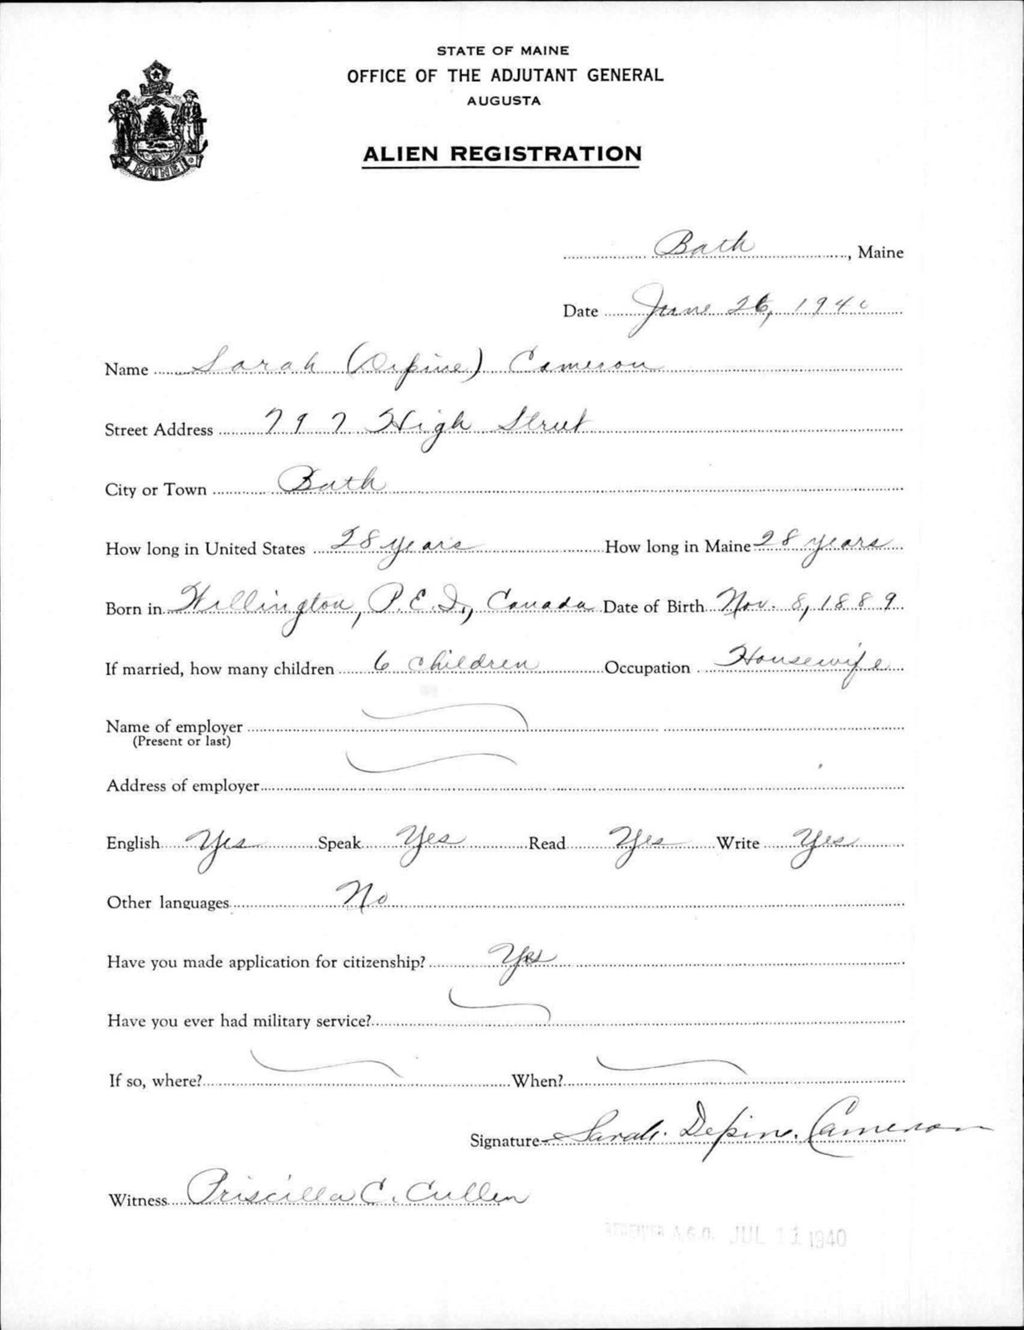 STATE OF MAINE
OFFICE OF THE ADJUTANT GENERAL
AUGUSTA
ALIEN REGISTRATION
MAINE
Bath, Maine
Date June 26, 1940
Name Sarah (Depine) Cameron
Street Address 797 High Street
City or Town Bath
How long in United States 28 years How long in Maine 28 years
Born in Wellington, P.E.I., Canada Date of Birth Nov. 8, 1889
If married, how many children 6 children Occupation Housewife
Name of employer
(Present or last)
Address of employer
English Yes Speak Yes Read Yes Write Yes
Other languages No
Have you made application for citizenship? Yes
Have you ever had military service?
If so, where? When?
Signature Sarah. Depine. Cameron
Witness Priscilla C. Cullen
RECEIVED A.G.O. JUL 11 1940